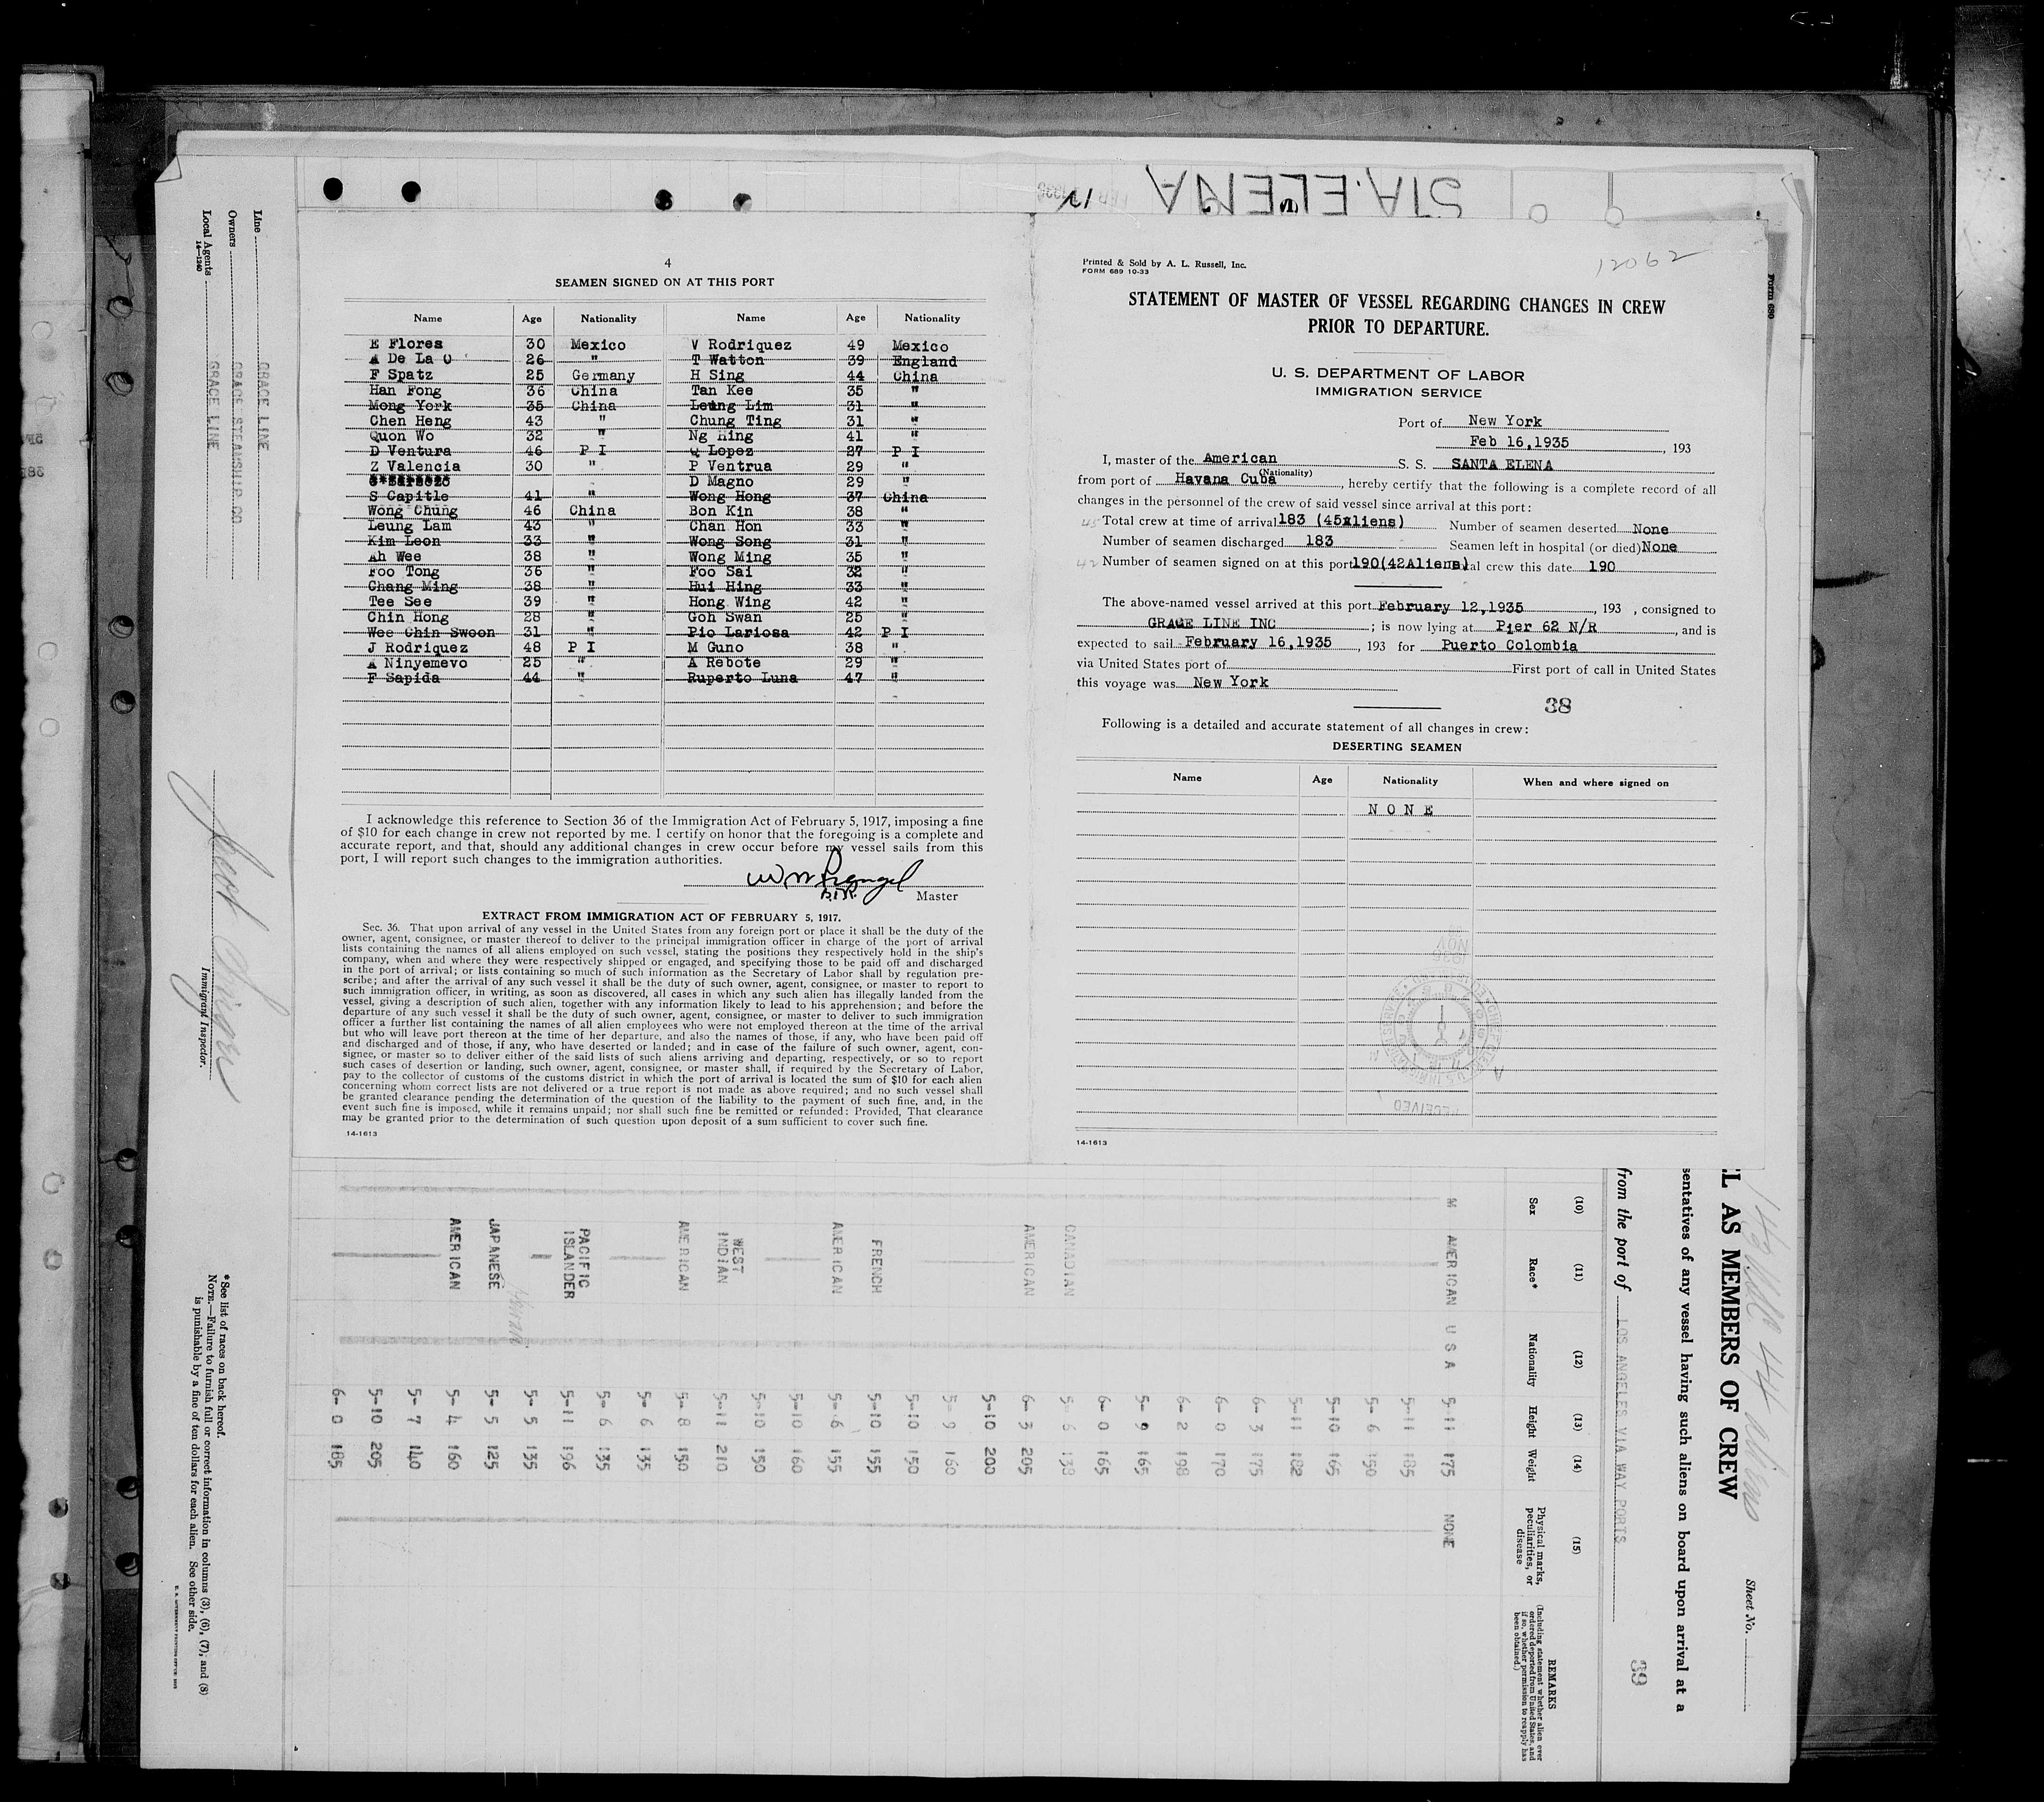 STA. ELENA
4
SEAMEN SIGNED ON AT THIS PORT
Name Age Nationality Name Age Nationality
E Flores 30 Mexico V Rodriquez 49 Mexico
A De La O 26 " T Watton 39 England
F Spatz 25 Germany H Sing 44 China
Han Fong 36 China Tan Kee 35 "
Mong York 35 China Leung Lim 31 "
Chen Heng 43 " Chung Ting 31 "
Quon Wo 32 " Ng Hing 41 "
D Ventura 46 P I Q Lopez 27 P I
Z Valencia 30 " P Ventrua 29 "
D Magno 29 "
S Capitle 41 " Wong Hong 37 China
Wong Chung 46 China Bon Kin 38 "
Leung Lam 43 " Chan Hon 33 "
Kim Leon 33 " Wong Song 31 "
Ah Wee 38 " Wong Ming 35 "
Foo Tong 36 " Foo Sai 32 "
Chang Ming 38 " Hui Hing 33 "
Tee See 39 " Hong Wing 42 "
Chin Hong 28 " Goh Swan 25 "
Wee Chin Swoon 31 " Pio Lariosa 42 P I
J Rodriquez 48 P I M Guno 38 "
A Ninyemevo 25 " A Rebote 29 "
F Sapida 44 " Ruperto Luna 47 "
I acknowledge this reference to Section 36 of the Immigration Act of February 5, 1917, imposing a fine
of $10 for each change in crew not reported by me. I certify on honor that the foregoing is a complete and
accurate report, and that, should any additional changes in crew occur before my vessel sails from this
port, I will report such changes to the immigration authorities.
Master
EXTRACT FROM IMMIGRATION ACT OF FEBRUARY 5, 1917.
Sec. 36. That upon arrival of any vessel in the United States from any foreign port or place it shall be the duty of the
owner, agent, consignee, or master thereof to deliver to the principal immigration officer in charge of the port of arrival
lists containing the names of all aliens employed on such vessel, stating the positions they respectively hold in the ship's
company, when and where they were respectively shipped or engaged, and specifying those to be paid off and discharged
in the port of arrival; or lists containing so much of such information as the Secretary of Labor shall by regulation pre-
scribe; and after the arrival of any such vessel it shall be the duty of such owner, agent, consignee, or master to report to
such immigration officer, in writing, as soon as discovered, all cases in which any such alien has illegally landed from the
vessel, giving a description of such alien, together with any information likely to lead to his apprehension; and before the
departure of any such vessel it shall be the duty of such owner, agent, consignee, or master to deliver to such immigration
officer a further list containing the names of all alien employees who were not employed thereon at the time of the arrival
but who will leave port thereon at the time of her departure, and also the names of those, if any, who have been paid off
and discharged and of those, if any, who have deserted or landed; and in case of the failure of such owner, agent, con-
signee, or master so to deliver either of the said lists of such aliens arriving and departing, respectively, or so to report
such cases of desertion or landing, such owner, agent, consignee, or master shall, if required by the Secretary of Labor,
pay to the collector of customs of the customs district in which the port of arrival is located the sum of $10 for each alien
concerning whom correct lists are not delivered or a true report is not made as above required; and no such vessel shall
be granted clearance pending the determination of the question of the liability to the payment of such fine, and, in the
event such fine is imposed, while it remains unpaid; nor shall such fine be remitted or refunded: Provided, That clearance
may be granted prior to the determination of such question upon deposit of a sum sufficient to cover such fine.
14-1613
Printed & Sold by A. L. Russell, Inc.
FORM 689 10-33
12062
Form 680
STATEMENT OF MASTER OF VESSEL REGARDING CHANGES IN CREW
PRIOR TO DEPARTURE.
U. S. DEPARTMENT OF LABOR
IMMIGRATION SERVICE
Port of New York
Feb 16,1935, 193
I, master of the American S. S. SANTA ELENA
(Nationality)
from port of Havana Cuba, hereby certify that the following is a complete record of all
changes in the personnel of the crew of said vessel since arrival at this port:
45 Total crew at time of arrival 183 (45aliens) Number of seamen deserted None
Number of seamen discharged 183 Seamen left in hospital (or died) None
42 Number of seamen signed on at this port 190(42Aliens) tal crew this date 190
The above-named vessel arrived at this port February 12,1935, 193 , consigned to
GRACE LINE INC ; is now lying at Pier 62 N/R, and is
expected to sail February 16,1935, 193 for Puerto Colombia
via United States port of First port of call in United States
this voyage was New York
38
Following is a detailed and accurate statement of all changes in crew:
DESERTING SEAMEN
Name Age Nationality When and where signed on
N O N E
RECEIVED
14-1613
Line GRACE LINE
Owners GRACE STEAMSHIP CO
Local Agents GRACE LINE
14-1240
Immigrant Inspector.
*See list of races on back hereof.
NOTE.—Failure to furnish full or correct information in columns (3), (6), (7), and (8)
is punishable by a fine of ten dollars for each alien. See other side.
L AS MEMBERS OF CREW
Sheet No.
sentatives of any vessel having such aliens on board upon arrival at a
from the port of LOS ANGELES VIA WAY PORTS
39
(10) (11) (12) (13) (14) (15)
Sex Race* Nationality Height Weight Physical marks, peculiarities, or disease
REMARKS
(Including statement whether alien ever ordered deported from United States, and if so, whether permission to reapply has been obtained.)
M AMERICAN U S A 5-11 175 NONE
5-11 185
5- 6 150
5-10 165
5-11 182
6- 3 175
6- 0 170
6- 2 198
5- 9 165
6- 0 165
CANADIAN 5- 6 138
AMERICAN 6- 3 205
5-10 200
5- 9 160
5-10 150
FRENCH 5-10 155
AMERICAN 5- 6 155
5-10 160
5-10 150
WEST INDIAN 5-11 210
AMERICAN 5- 8 150
5- 6 135
5- 6 135
PACIFIC ISLANDER 5-11 196
5- 5 135
JAPANESE 5- 5 125
AMERICAN 5- 4 160
5- 7 140
5-10 205
6- 0 185